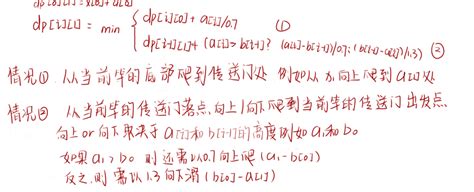 dp[i][1] = min { dp[i][0] + a[i]/0.7 ①
dp[i-1][1]+ (a[i] > b[i-1]? (a[i]-b[i-1])/0.7 : (b[i-1]-a[i])/1.3) ②
情况① 从当前竿的底部爬到传送门处 例如从 向上爬到 a[i] 处
情况② 从当前竿的传送门落点,向上/向下爬到当前竿的传送门出发点.
向上or向下取决于 a[i]和 b[i-1]的高度例如 a₁和 b₀
如果 a₁ > b₀ 则还需以0.7向上爬 (a₁ - b[0])
反之.则需以1.3向下滑 (b[0]-a[1])